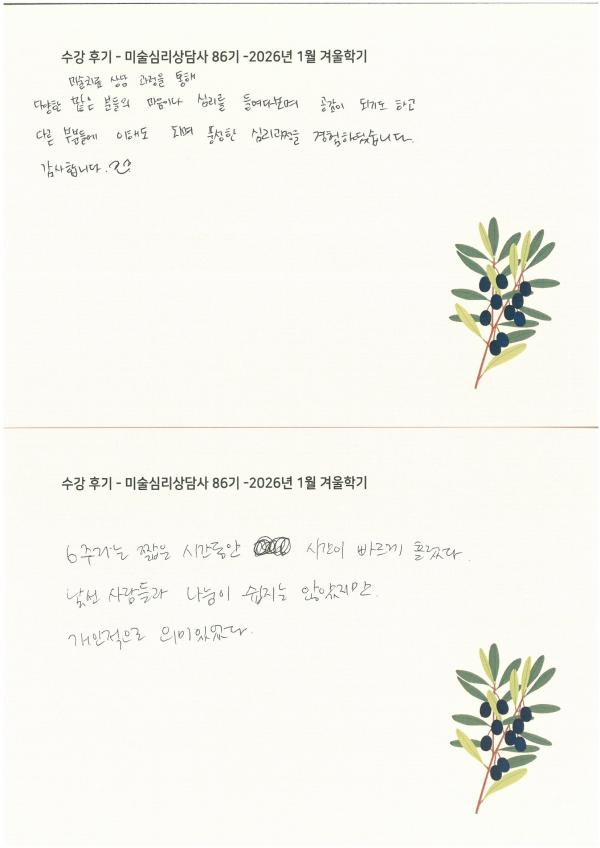 수강 후기 - 미술심리상담사 86기 -2026년 1월 겨울학기
미술치료 상담 과정을 통해
다양한 많은 분들의 마음이나 심리를 들여다보며 공감이 되기도 하고
다른 부분들에 이해도 되며 풍성한 심리과정을 경험하였습니다.
감사합니다.
수강 후기 - 미술심리상담사 86기 -2026년 1월 겨울학기
6주라는 짧은 시간동안 시간이 빠르게 흘렀다.
낯선 사람들과 나눔이 쉽지는 않았지만.
개인적으로 의미있었다.